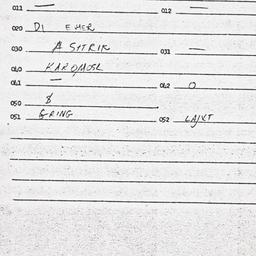 011 — 012 —
020 DI EMER
030 A SHTRIR 031 —
040 KAROMOSL
041 — 042 O
050 &
051 GRING 052 LAJKT